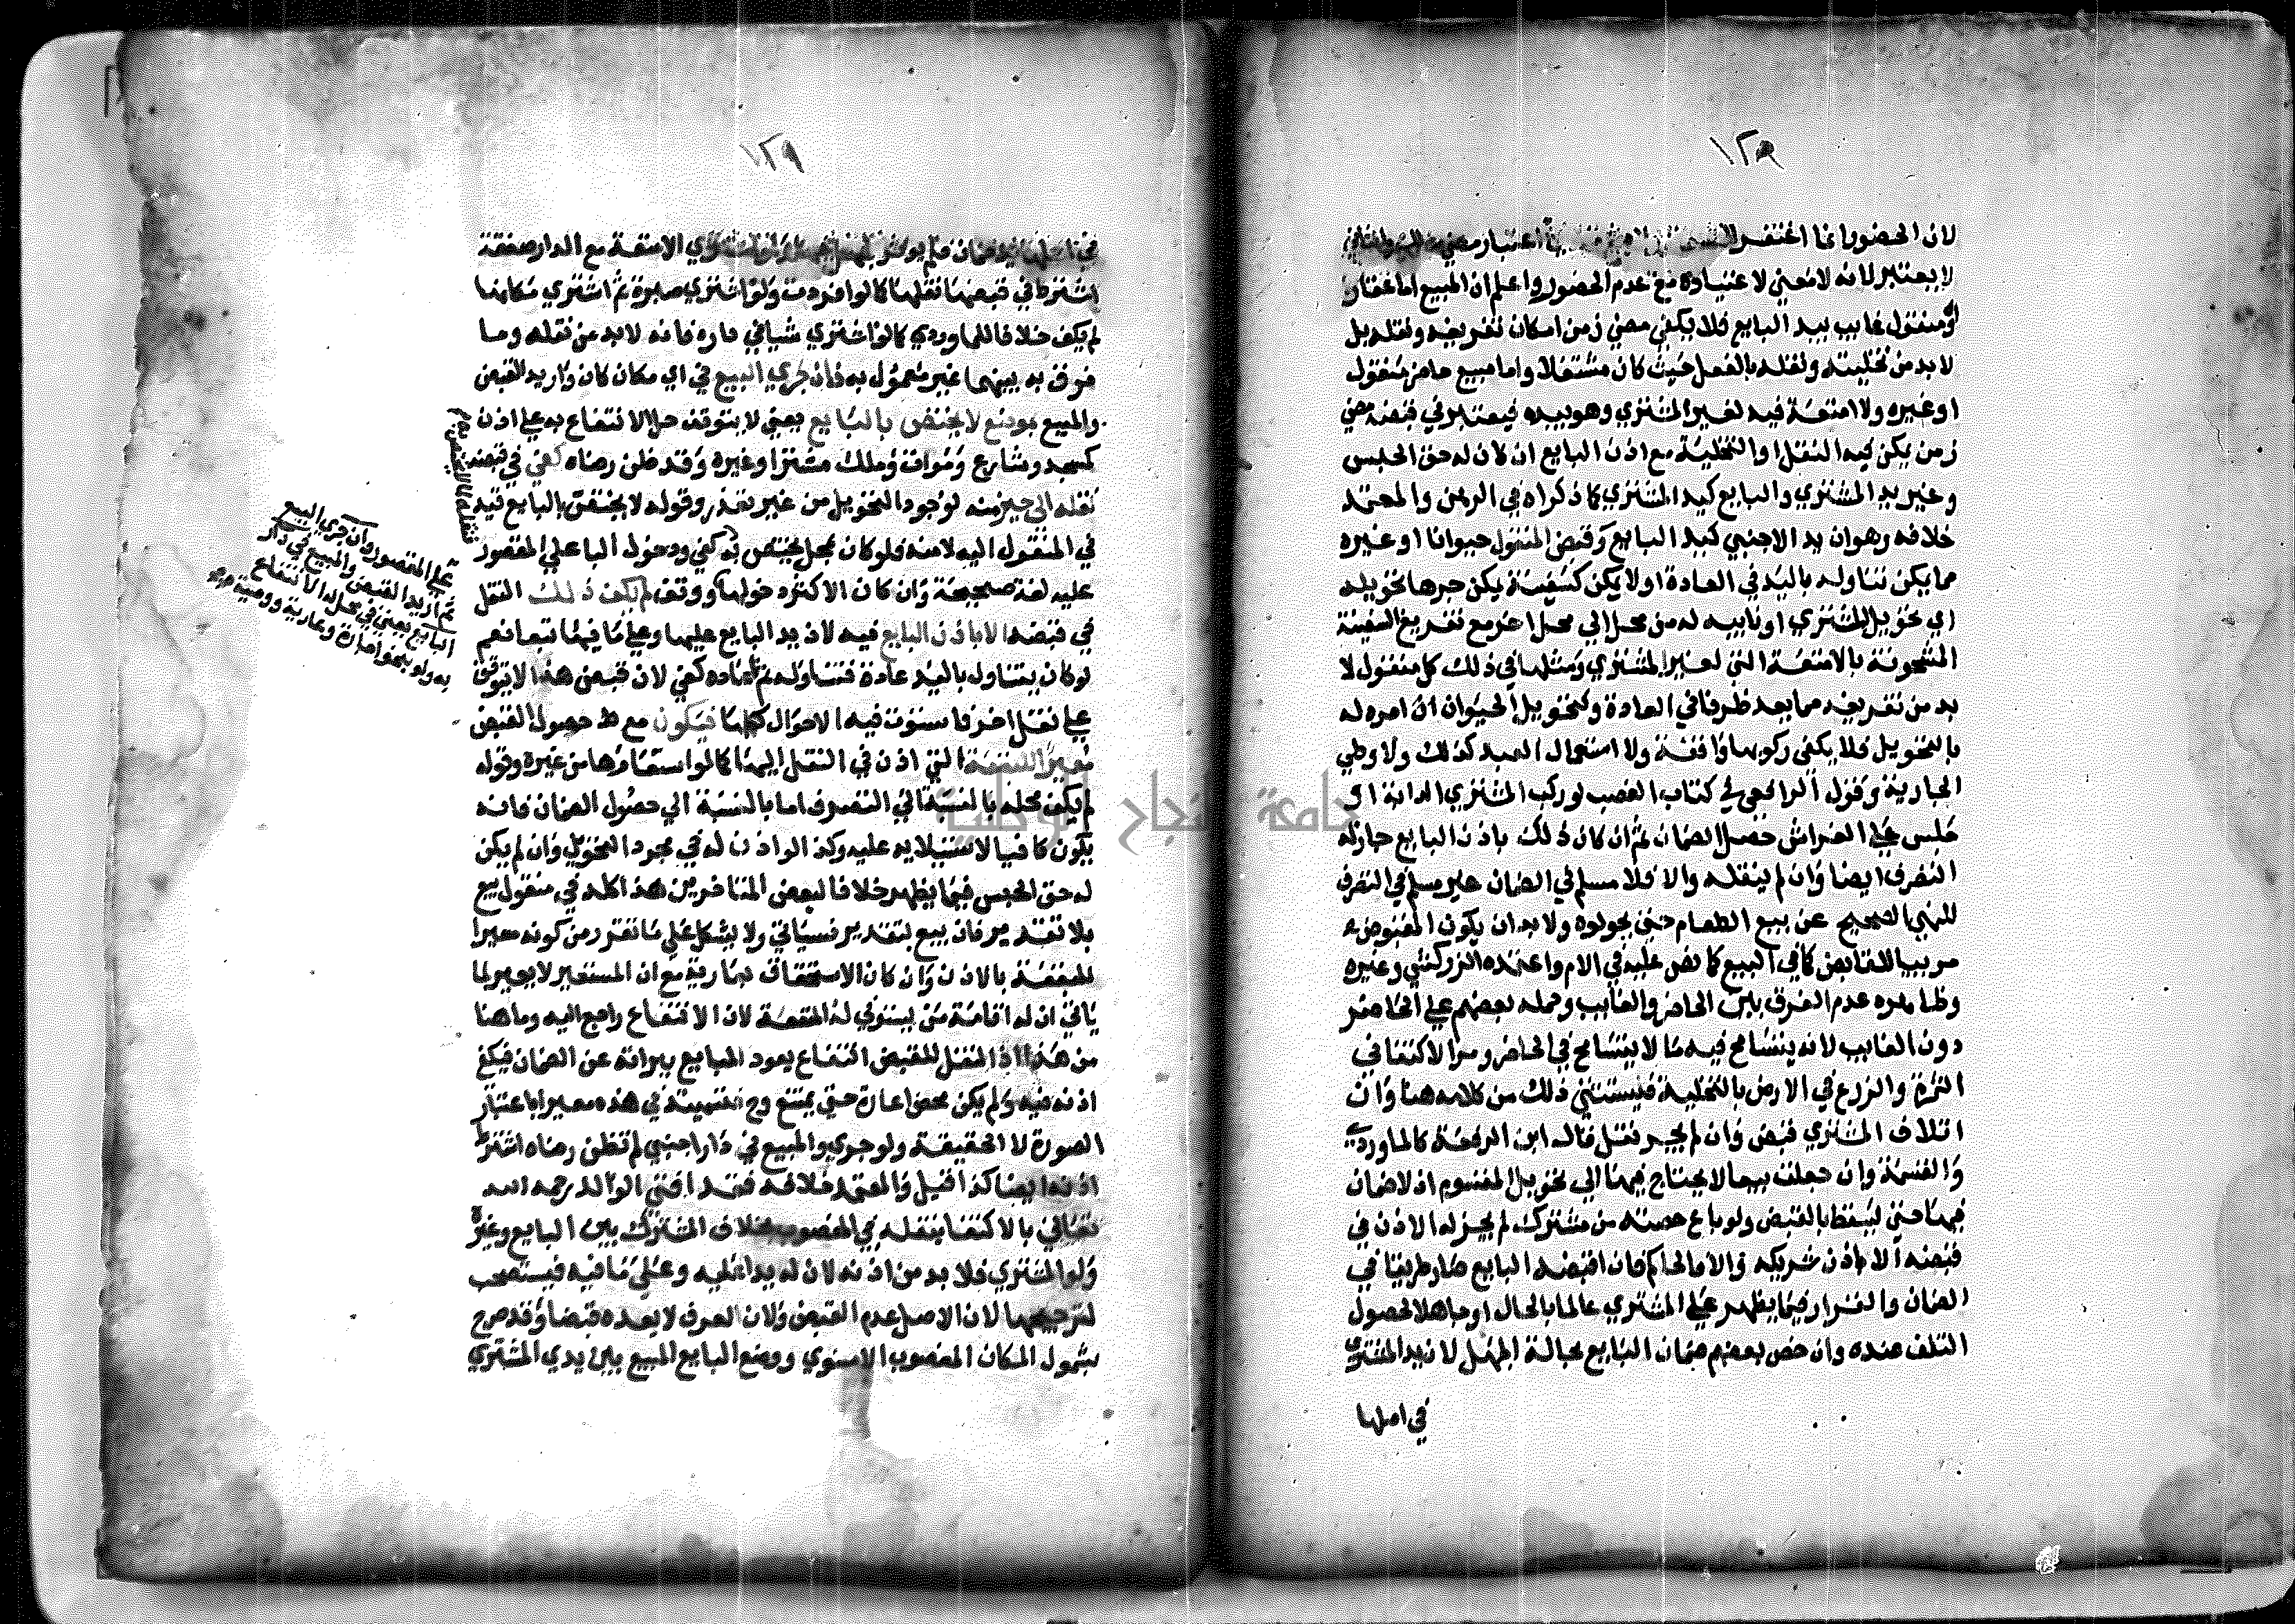 ١٢٩
لان الحضور انما اغتفر اعتبار مضي
لا يعتبر لانه لا معني لاعتباره مع عدم الحضور واعلم ان المبيع اما عقار
او منقول غايب بيد البايع فلا يكفي مضي زمن امكان تفريغه ونقله بل
لا بد من تخليته ونقله بالفعل حيث كان مشتغلا واما مبيع حاضر منقول
او غيره ولا امتعة فيه لغير المشتري وهو بيده فيعتبر في قبضه مضي
زمن يمكن فيه النقل او التخلية مع اذن البايع ان كان له حق الحبس
وغير يد المشتري والبايع كيد المشتري كما ذكراه في الرهن والمعتمد
خلافه وهو ان يد الاجنبي كيد البايع وقبض المنقول حيوانا او غيره
مما يمكن تناوله باليد في العادة او لا يمكن كسفينة يمكن جرها تحويله
اي تحويل المشتري او نايبه له من محل الي محل اخر مع تفريغ السفينة
المشحونة بالامتعة التي لغير المشتري ومثلها في ذلك كل منقول لا
بد من تفريغه مما يعد ظرفا في العادة وكتحويل الحيوان ان امره له
بالتحويل فلا يكفي ركوبها واقفة ولا استعمال العبد كذلك ولا وطي
الجارية وقول الرافعي في كتاب الغصب لو ركب المشتري الدابة او
جلس علي الفراش حصل الضمان ثم ان كان ذلك باذن البايع جاز له
التصرف ايضا وان لم ينقله والا فلا مسلم في الضمان غير مسلم في التصرف
للنهي الصحيح عن بيع الطعام حتي يحولوه ولا بد ان يكون المقبوض
مربيا للقابض كما في البيع كما نص عليه في الام واعتمده الزركشي وغيره
وظاهره عدم الفرق بين الحاضر والغايب وحمله بعضهم علي الحاضر
دون الغايب لانه يتسامح فيه ما لا يتسامح في الحاضر ومر الاكتفا في
الثمرة والزرع في الارض بالتخلية فيستثني ذلك من كلامه هنا وان
اتلاف المشتري قبض وان لم يجر نقل قاله ابن الرفعة كالماوردي
والقسمة وان جعلت بيعا لا يحتاج فيها الي تحويل المقسوم اذ لا ضمان
فيها حتي يسقط بالقبض ولو باع حصته من مشترك لم يجز له الاذن في
قبضه الا باذن شريكه والا فالحاكم فان اقبضه البايع صار طريقا في
الضمان والقرار فيما يظهر علي المشتري عالما بالحال او جاهلا لحصول
التلف عنده وان خص بعضهم ضمان البايع بحالة الجهل لان يد المشتري
في اصلها
١٢٩
في اصلها يد ضمان فلم يوثر الامتعة مع الدار صفقة
اشترط في قبضها نقلها كما لو افردت ولو اشتري صبرة ثم اشتري مكانها
لم يكف خلافا للماوردي كما لو اشتري شيا في داره فانه لا بد من نقله وما
فرق به بينهما غير معمول به فان جري البيع في اي مكان كان واريد القبض
والمبيع بموضع لا يختص بالبايع يعني لا يتوقف حل الانتفاع به علي اذنه
كمسجد وشارع وموات وملك مشتر او غيره وقد ظن رضاه كفي في قبضه
نقله الي حيز منه لوجود التحويل من غير تعذر وقوله لا يختص بالبايع قيد
في المنقول اليه لا منه فلو كان بمحل يختص به كفي ودخول البا علي المقصور
عليه لغة صحيحة وان كان الاكثر دخولها ووقف لم يكف ذلك النقل
في قبضه الا باذن البايع فيه لان يد البايع عليها وعلي ما فيها تبعا نعم
لو كان يتناول باليد عادة فتناوله ثم اعاده كفي لان قبض هذا لا يتوقف
علي نقل اخر فاستوت فيه الاحوال كلها فيكون مع حصول القبض
معيرا للبقعة التي اذن في النقل اليها كما لو استعارها من غيره وقوله
لم يكف محله بالنسبة الي التصرف اما بالنسبة الي حصول الضمان فانه
يكون كافيا لاستيلايه عليه وكذا لو اذن له في مجرد التحويل وان لم يكن
له حق الحبس فيما يظهر خلافا لبعض المتاخرين هذا كله في منقول بيع
بلا تقدير فان بيع بتقدير فسياتي ولا يشكل علي ما تقرر من كونه معيرا
للبقعة بالاذن وان كان الاستحقاق بعارية مع ان المستعير لا يعير لما
ياتي ان له انابة من يستوفي له المنفعة لان الانتفاع راجع اليه وما هنا
من هذا اذ النقل للقبض انتفاع يعود للبايع ببراته عن الضمان فيكفي
اذنه فيه ولم يكن محض اعارة حتي يمتنع وح فتسميته في هذه معيرا باعتبار
الصورة لا الحقيقة ولو جري والمبيع في دار اجنبي لم تظن رضاه اشترط
اذنه ايضا كذا قيل والمعتمد خلافه فقد افتي الوالد رحمه الله
تعالي بالاكتفا بنقله في المغصوب بخلاف المشترك بين البايع وغيره
ولو المشتري فلا بد من اذنه لان له يدا عليه وعلي ما فيه فيستصحب
لترجيحها لان الاصل عدم القبض ولان العرف لا يعده قبضا وقد صرح
بشمول المكان المغصوب الاسنوي ووضع البايع المبيع بين يدي المشتري
علي المقصور وان جري البيع
ثم اريد القبض والمبيع في دار
البايع يعني في محل له الانتفاع
به ولو بنحو اجارة وعارية ووصية
جامعة النجاح الوطنية